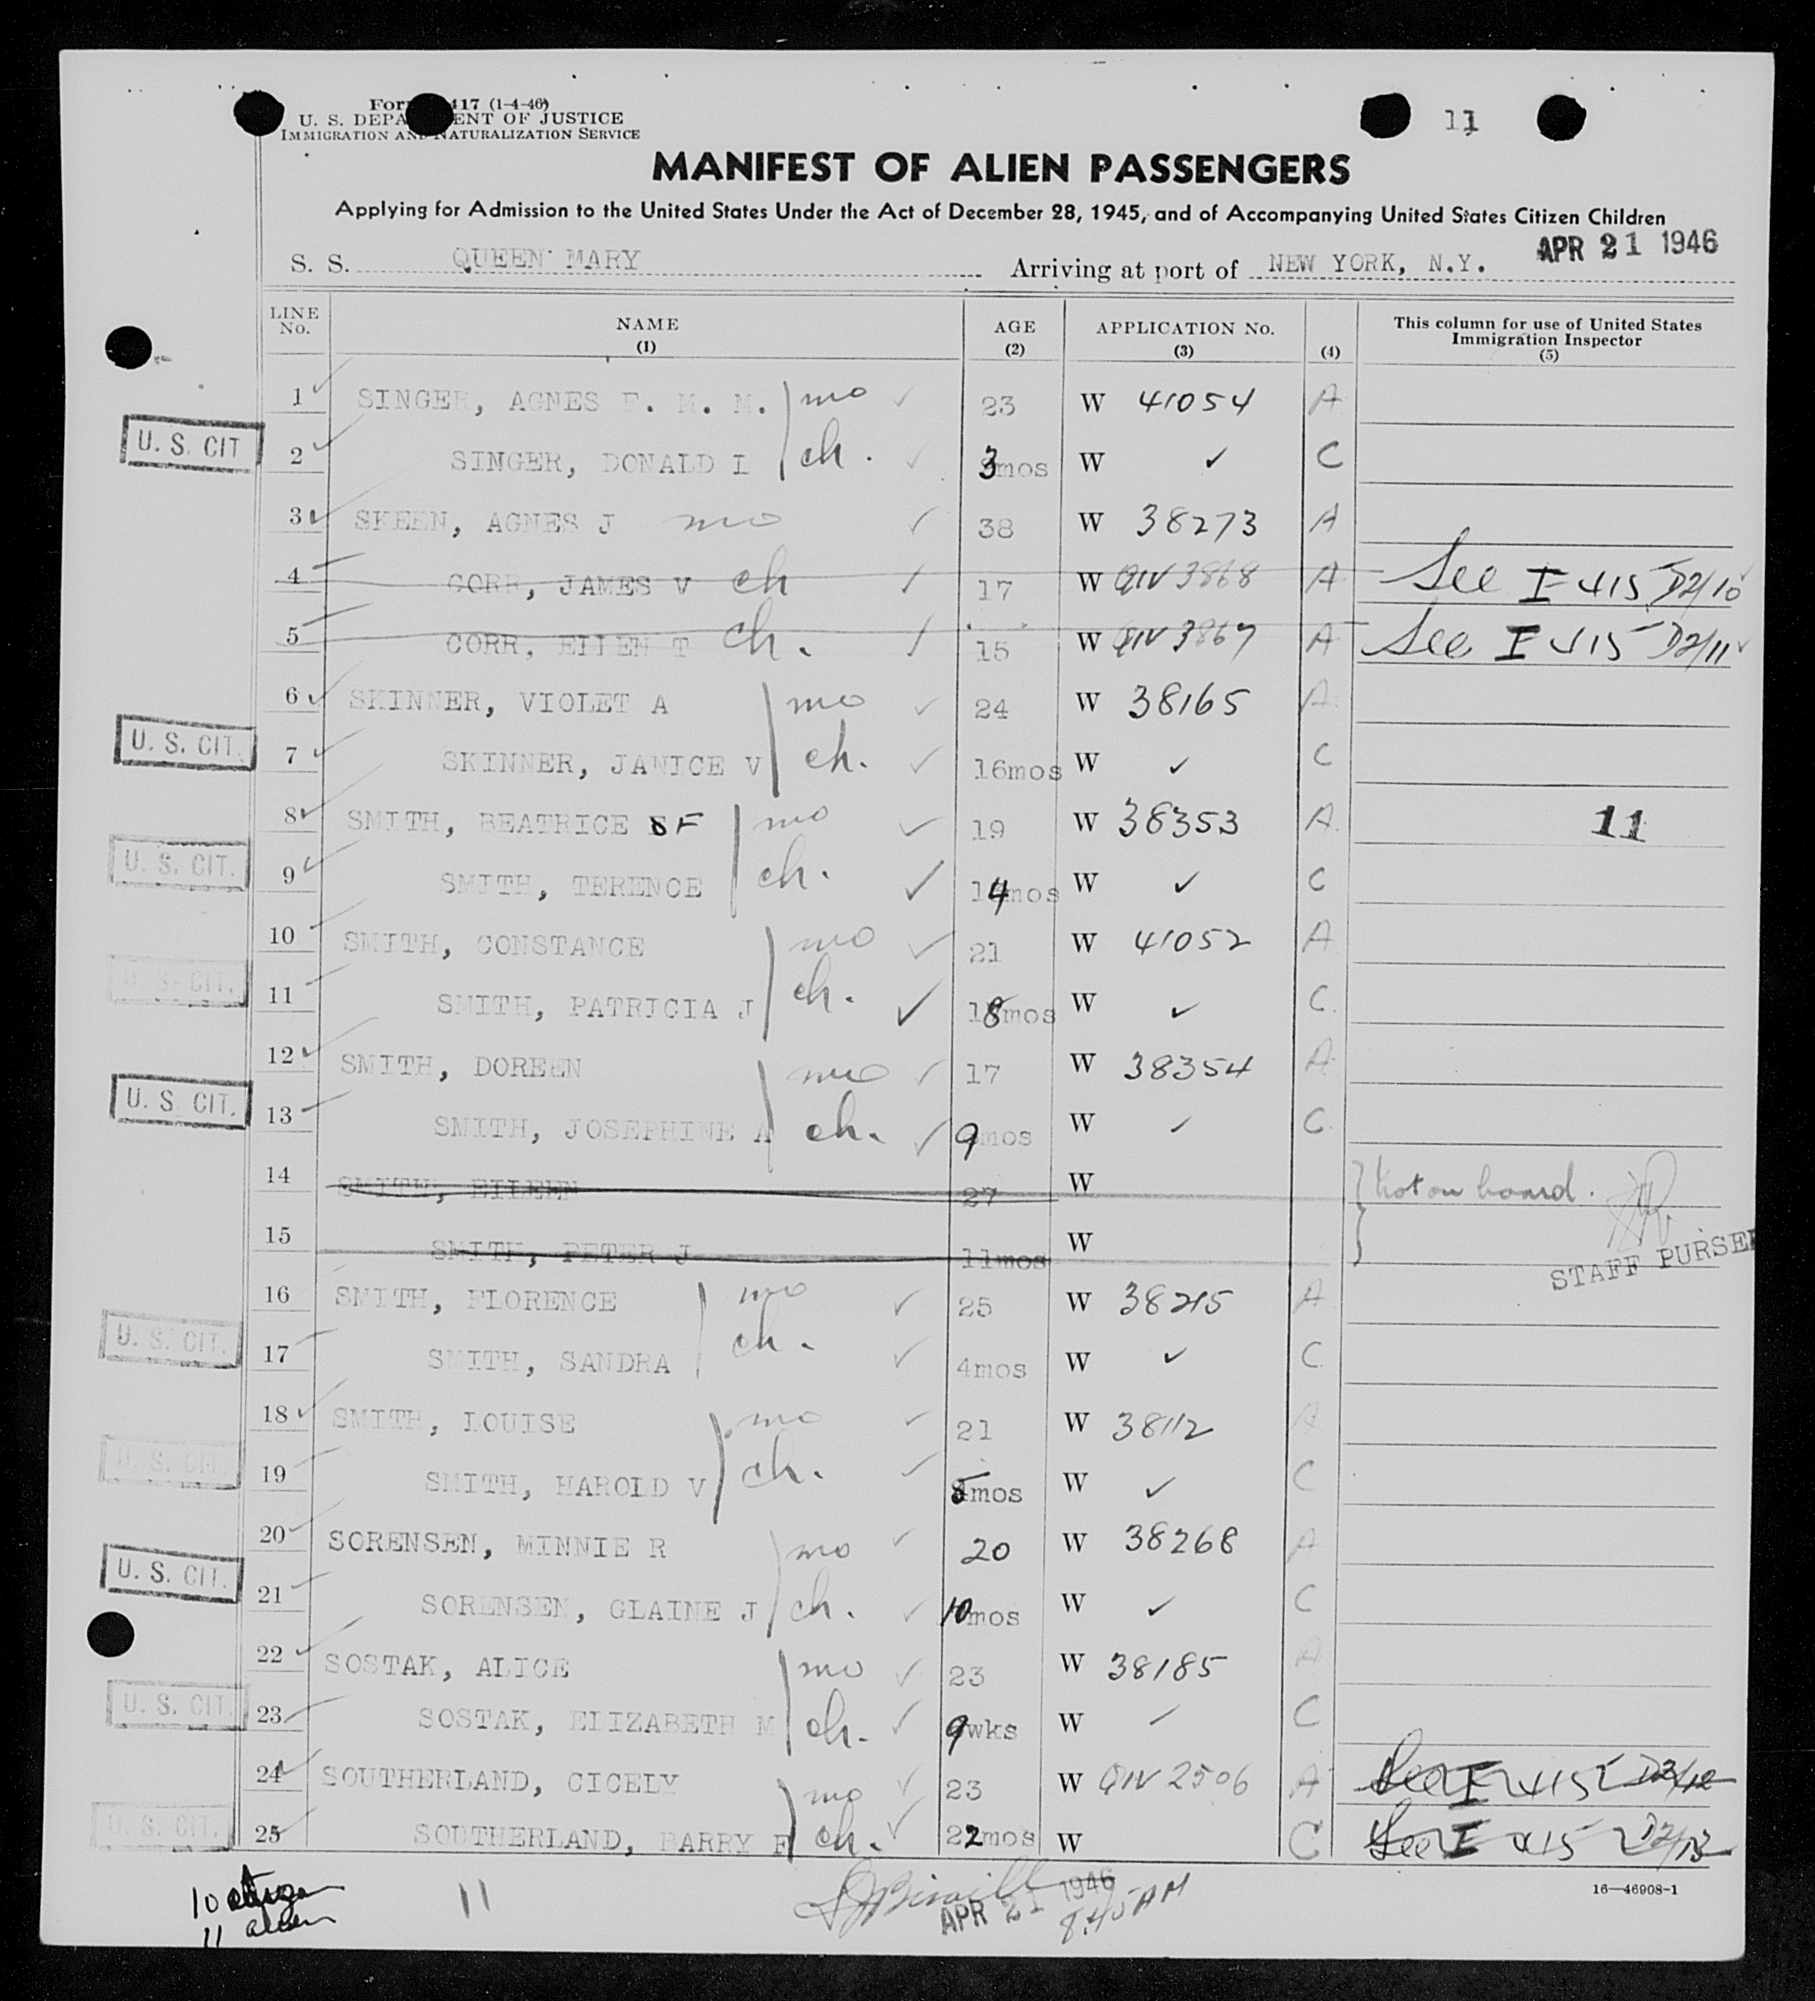 Form 417 (1-4-46)
U. S. DEPARTMENT OF JUSTICE
IMMIGRATION AND NATURALIZATION SERVICE
11
MANIFEST OF ALIEN PASSENGERS
Applying for Admission to the United States Under the Act of December 28, 1945, and of Accompanying United States Citizen Children
S. S. QUEEN MARY Arriving at port of NEW YORK, N.Y. APR 21 1946
LINE No. NAME (1) AGE (2) APPLICATION No. (3) (4) This column for use of United States Immigration Inspector (5)
1 SINGER, AGNES E. M. M. mo 23 W 41054 A
U. S. CIT 2 SINGER, DONALD I ch. 3mos W ✓ C
3 SKEEN, AGNES J mo 38 W 38273 A
4 CORR, JAMES V ch 17 W QIV 3868 A See I 415 D2/10
5 CORR, EILEEN T ch. 15 W QIV 3867 A See I 415 D2/11
6 SKINNER, VIOLET A mo 24 W 38165 A
U. S. CIT. 7 SKINNER, JANICE V ch. 16mos W ✓ C
8 SMITH, BEATRICE F mo 19 W 38353 A 11
U. S. CIT. 9 SMITH, TERENCE ch. 14mos W ✓ C
10 SMITH, CONSTANCE mo 21 W 41052 A
U. S. CIT. 11 SMITH, PATRICIA J ch. 18mos W ✓ C.
12 SMITH, DOREEN mo 17 W 38354 A
U. S. CIT. 13 SMITH, JOSEPHINE A ch. 9mos W ✓ C.
14 SMITH, EILEEN 27 W Not on board.
15 SMITH, PETER J 11mos W
STAFF PURSER
16 SMITH, FLORENCE mo 25 W 38215 A
U. S. CIT. 17 SMITH, SANDRA ch. 4mos W ✓ C
18 SMITH, LOUISE mo 21 W 38112 A
U. S. CIT. 19 SMITH, HAROLD V ch. 5mos W ✓ C
20 SORENSEN, MINNIE R mo 20 W 38268 A
U. S. CIT. 21 SORENSEN, GLAINE J ch. 10mos W ✓ C
22 SOSTAK, ALICE mo 23 W 38185 A
U. S. CIT. 23 SOSTAK, ELIZABETH M ch. 9wks W ✓ C
24 SOUTHERLAND, CICELY mo 23 W QIV 2506 A See I 415 D2/12
U. S. CIT. 25 SOUTHERLAND, BARRY F ch. 22mos W C See I 415 D2/13
16—46908-1
10 citizen 11 APR 21 1946
11 alien 8.45 AM